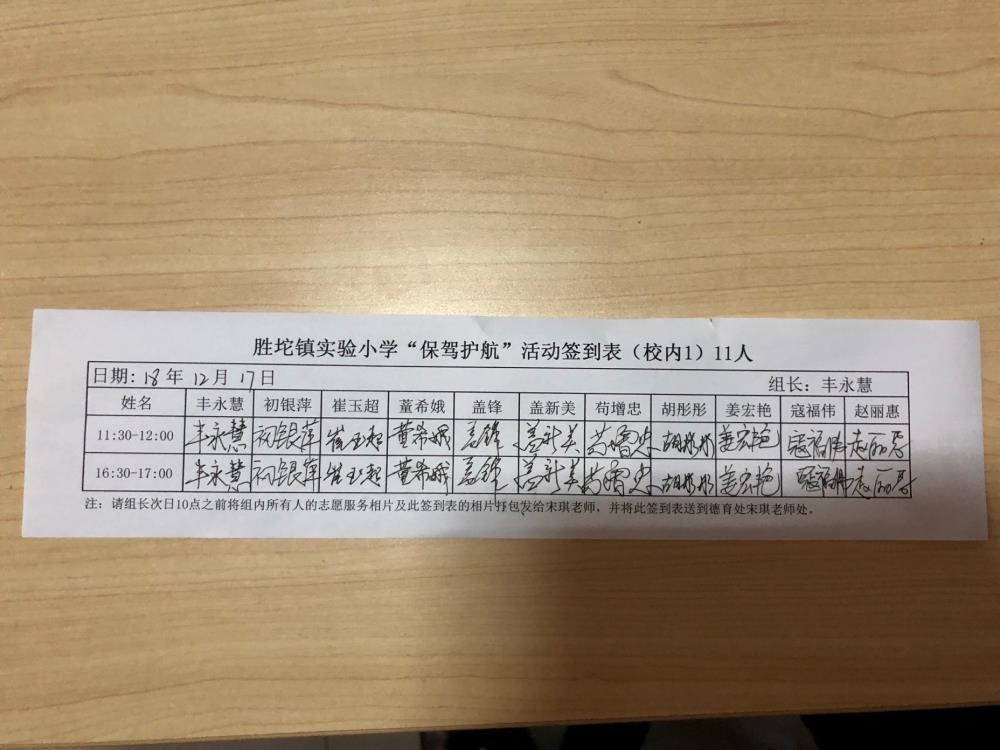 胜坨镇实验小学“保驾护航”活动签到表（校内1）11人
日期: 18 年 12 月 17 日 组长：丰永慧
姓名 丰永慧 初银萍 崔玉超 董希娥 盖锋 盖新美 苟增忠 胡彤彤 姜宏艳 寇福伟 赵丽惠
11:30-12:00 丰永慧 初银萍 崔玉超 董希娥 盖锋 盖新美 苟增忠 胡彤彤 姜宏艳 寇福伟 赵丽惠
16:30-17:00 丰永慧 初银萍 崔玉超 董希娥 盖锋 盖新美 苟增忠 胡彤彤 姜宏艳 寇福伟 赵丽惠
注：请组长次日10点之前将组内所有人的志愿服务相片及此签到表的相片打包发给宋琪老师，并将此签到表送到德育处宋琪老师处。